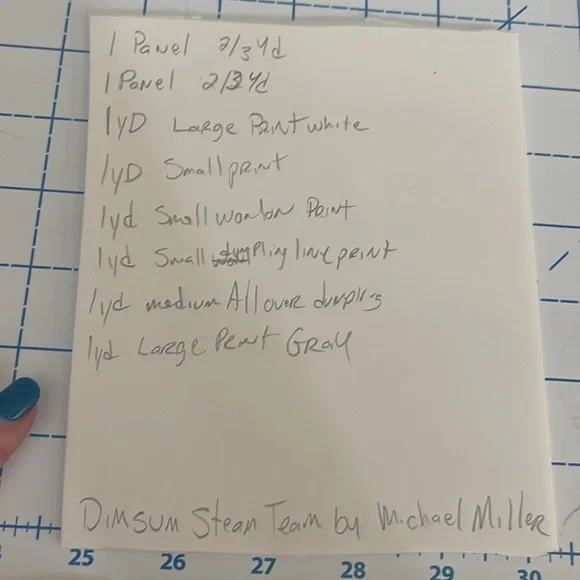 1 Panel 2/3 yd
1 Panel 2/3 yd
1yD Large Print white
1yD Small print
1yd Small wonton Print
1yd Small dumpling line print
1yd medium All over dumplings
1yd Large Print Gray
DimSum Steam Team by Michael Miller
25 26 27 28 29 30